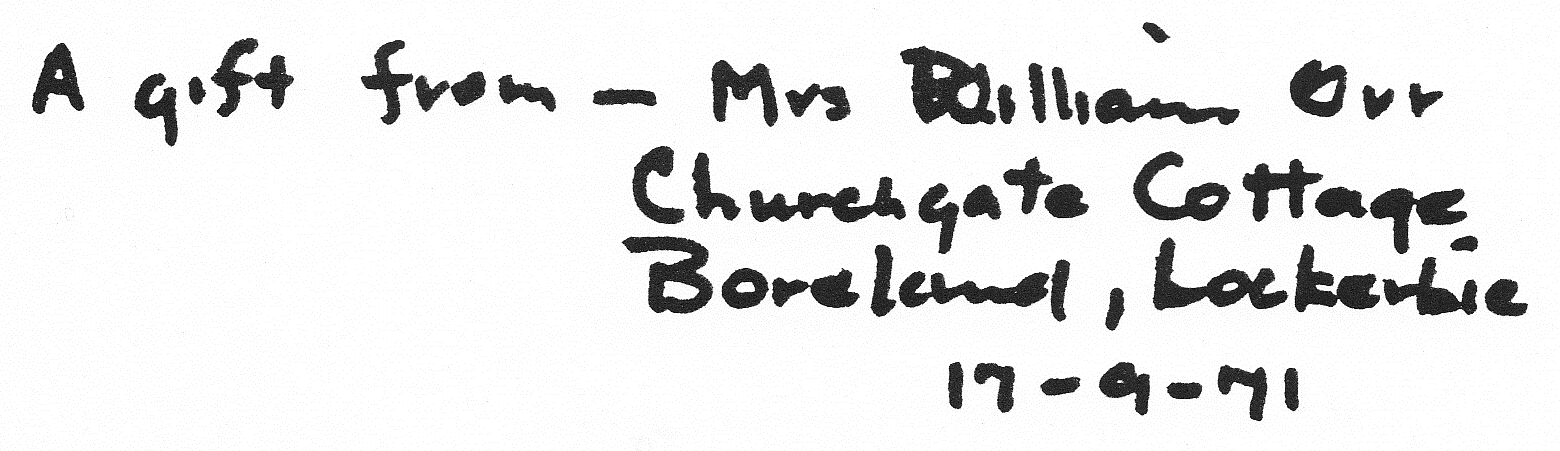 A gift from – Mrs William Orr
Churchgate Cottage
Boreland, Lockerbie
17-9-71